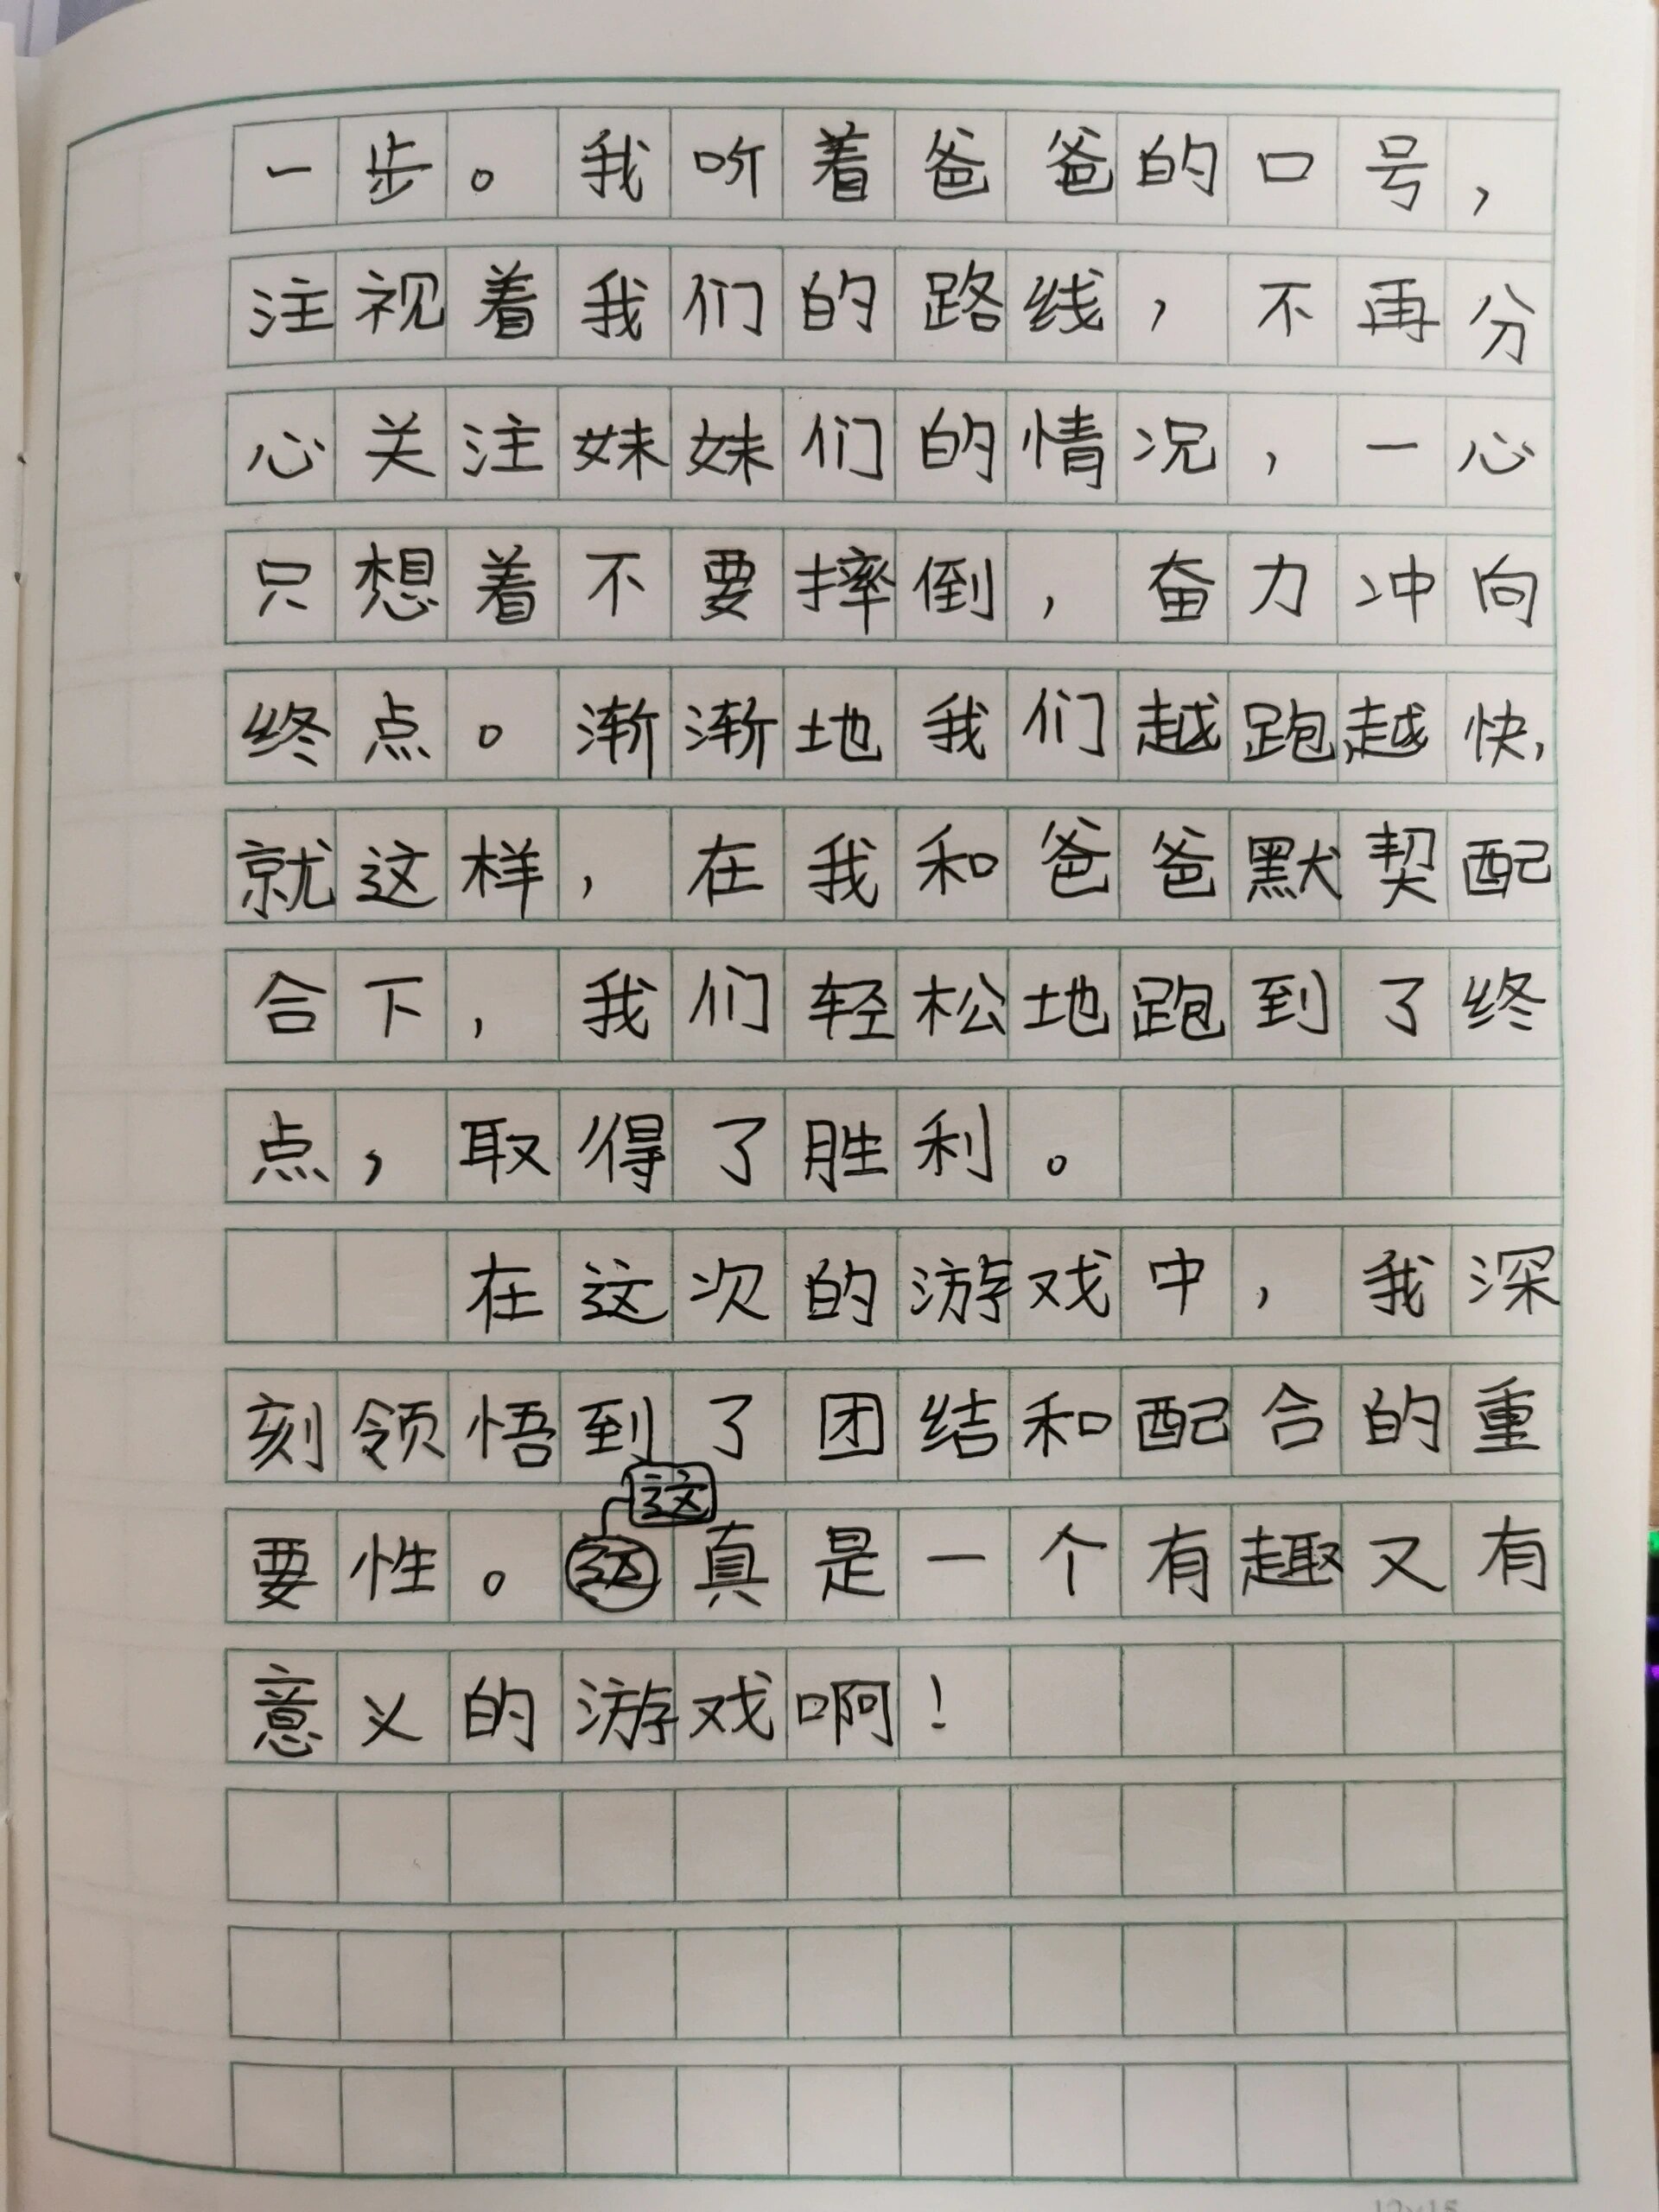 一步。我听着爸爸的口号，
注视着我们的路线，不再分
心关注妹妹们的情况，一心
只想着不要摔倒，奋力冲向
终点。渐渐地我们越跑越快，
就这样，在我和爸爸默契配
合下，我们轻松地跑到了终
点，取得了胜利。
在这次的游戏中，我深
刻领悟到了团结和配合的重
要性。这真是一个有趣又有
意义的游戏啊！